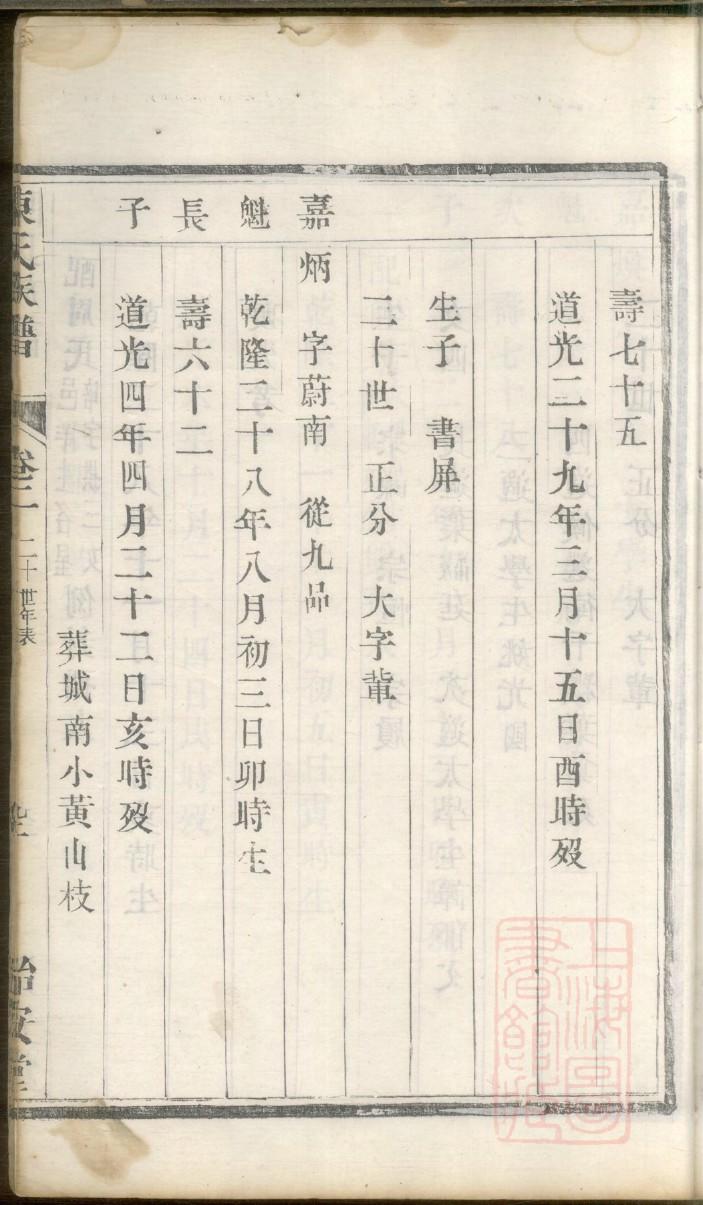 壽七十五
道光二十九年三月十五日酉時歿
生子 書屏
二十世 正分 大字輩
嘉魁長子
炳 字蔚南 從九品
乾隆二十八年八月初三日卯時生
壽六十二
道光四年四月二十二日亥時歿
葬城南小黃山枝
陳氏族譜
二十世年表
上海圖書館藏